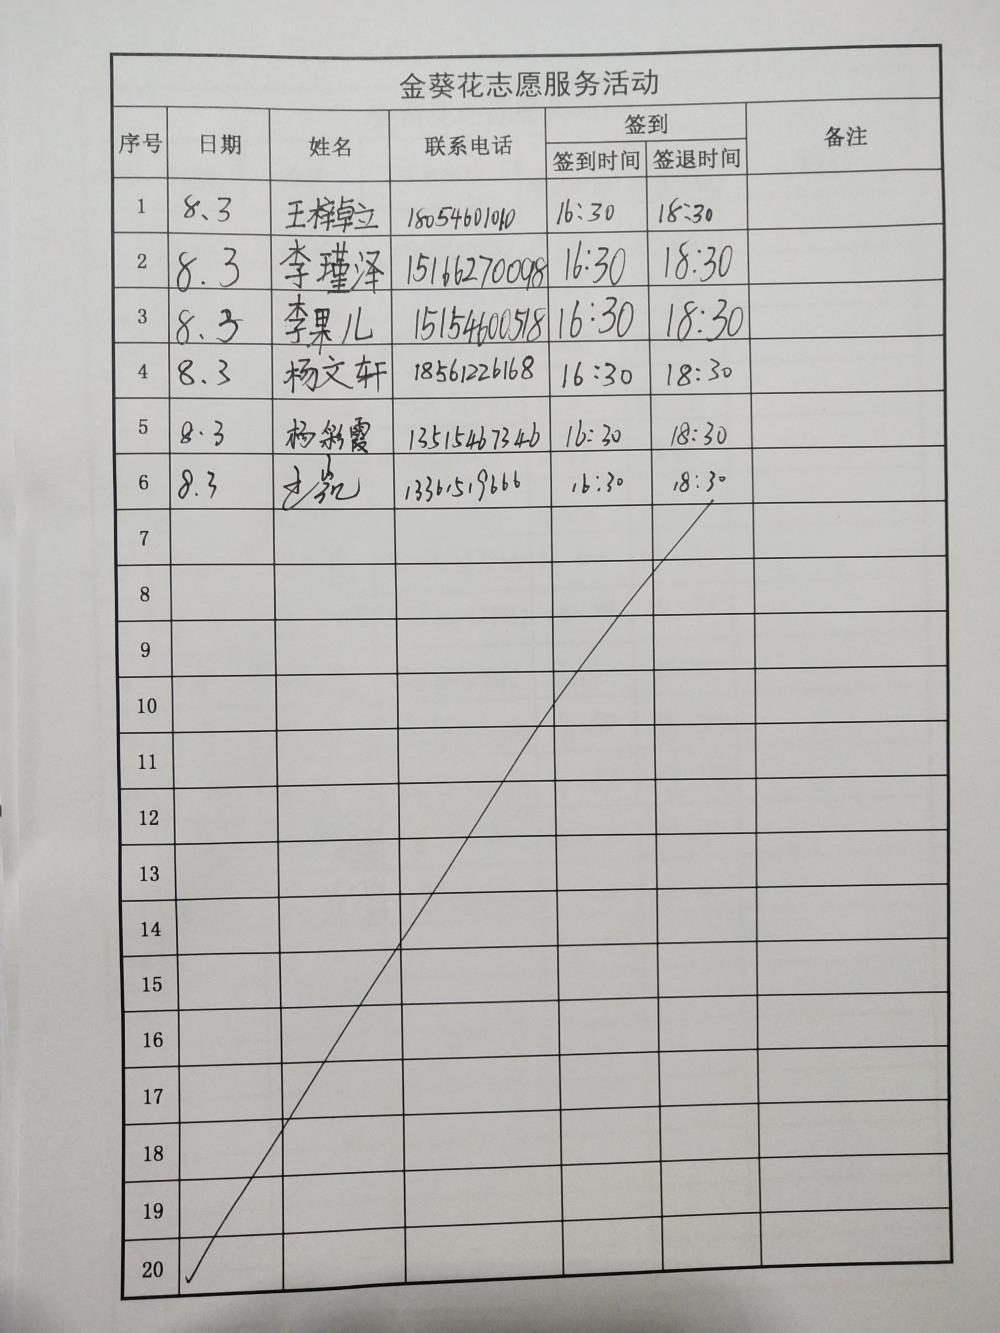 金葵花志愿服务活动
序号 日期 姓名 联系电话 签到 备注
签到时间 签退时间
1 8.3 王梓卓立 18054601010 16:30 18:30
2 8.3 李瑾泽 15166270098 16:30 18:30
3 8.3 李果儿 15154600518 16:30 18:30
4 8.3 杨文轩 18561226168 16:30 18:30
5 8.3 杨彩霞 13515467346 16:30 18:30
6 8.3 13361519666 16:30 18:30
7
8
9
10
11
12
13
14
15
16
17
18
19
20